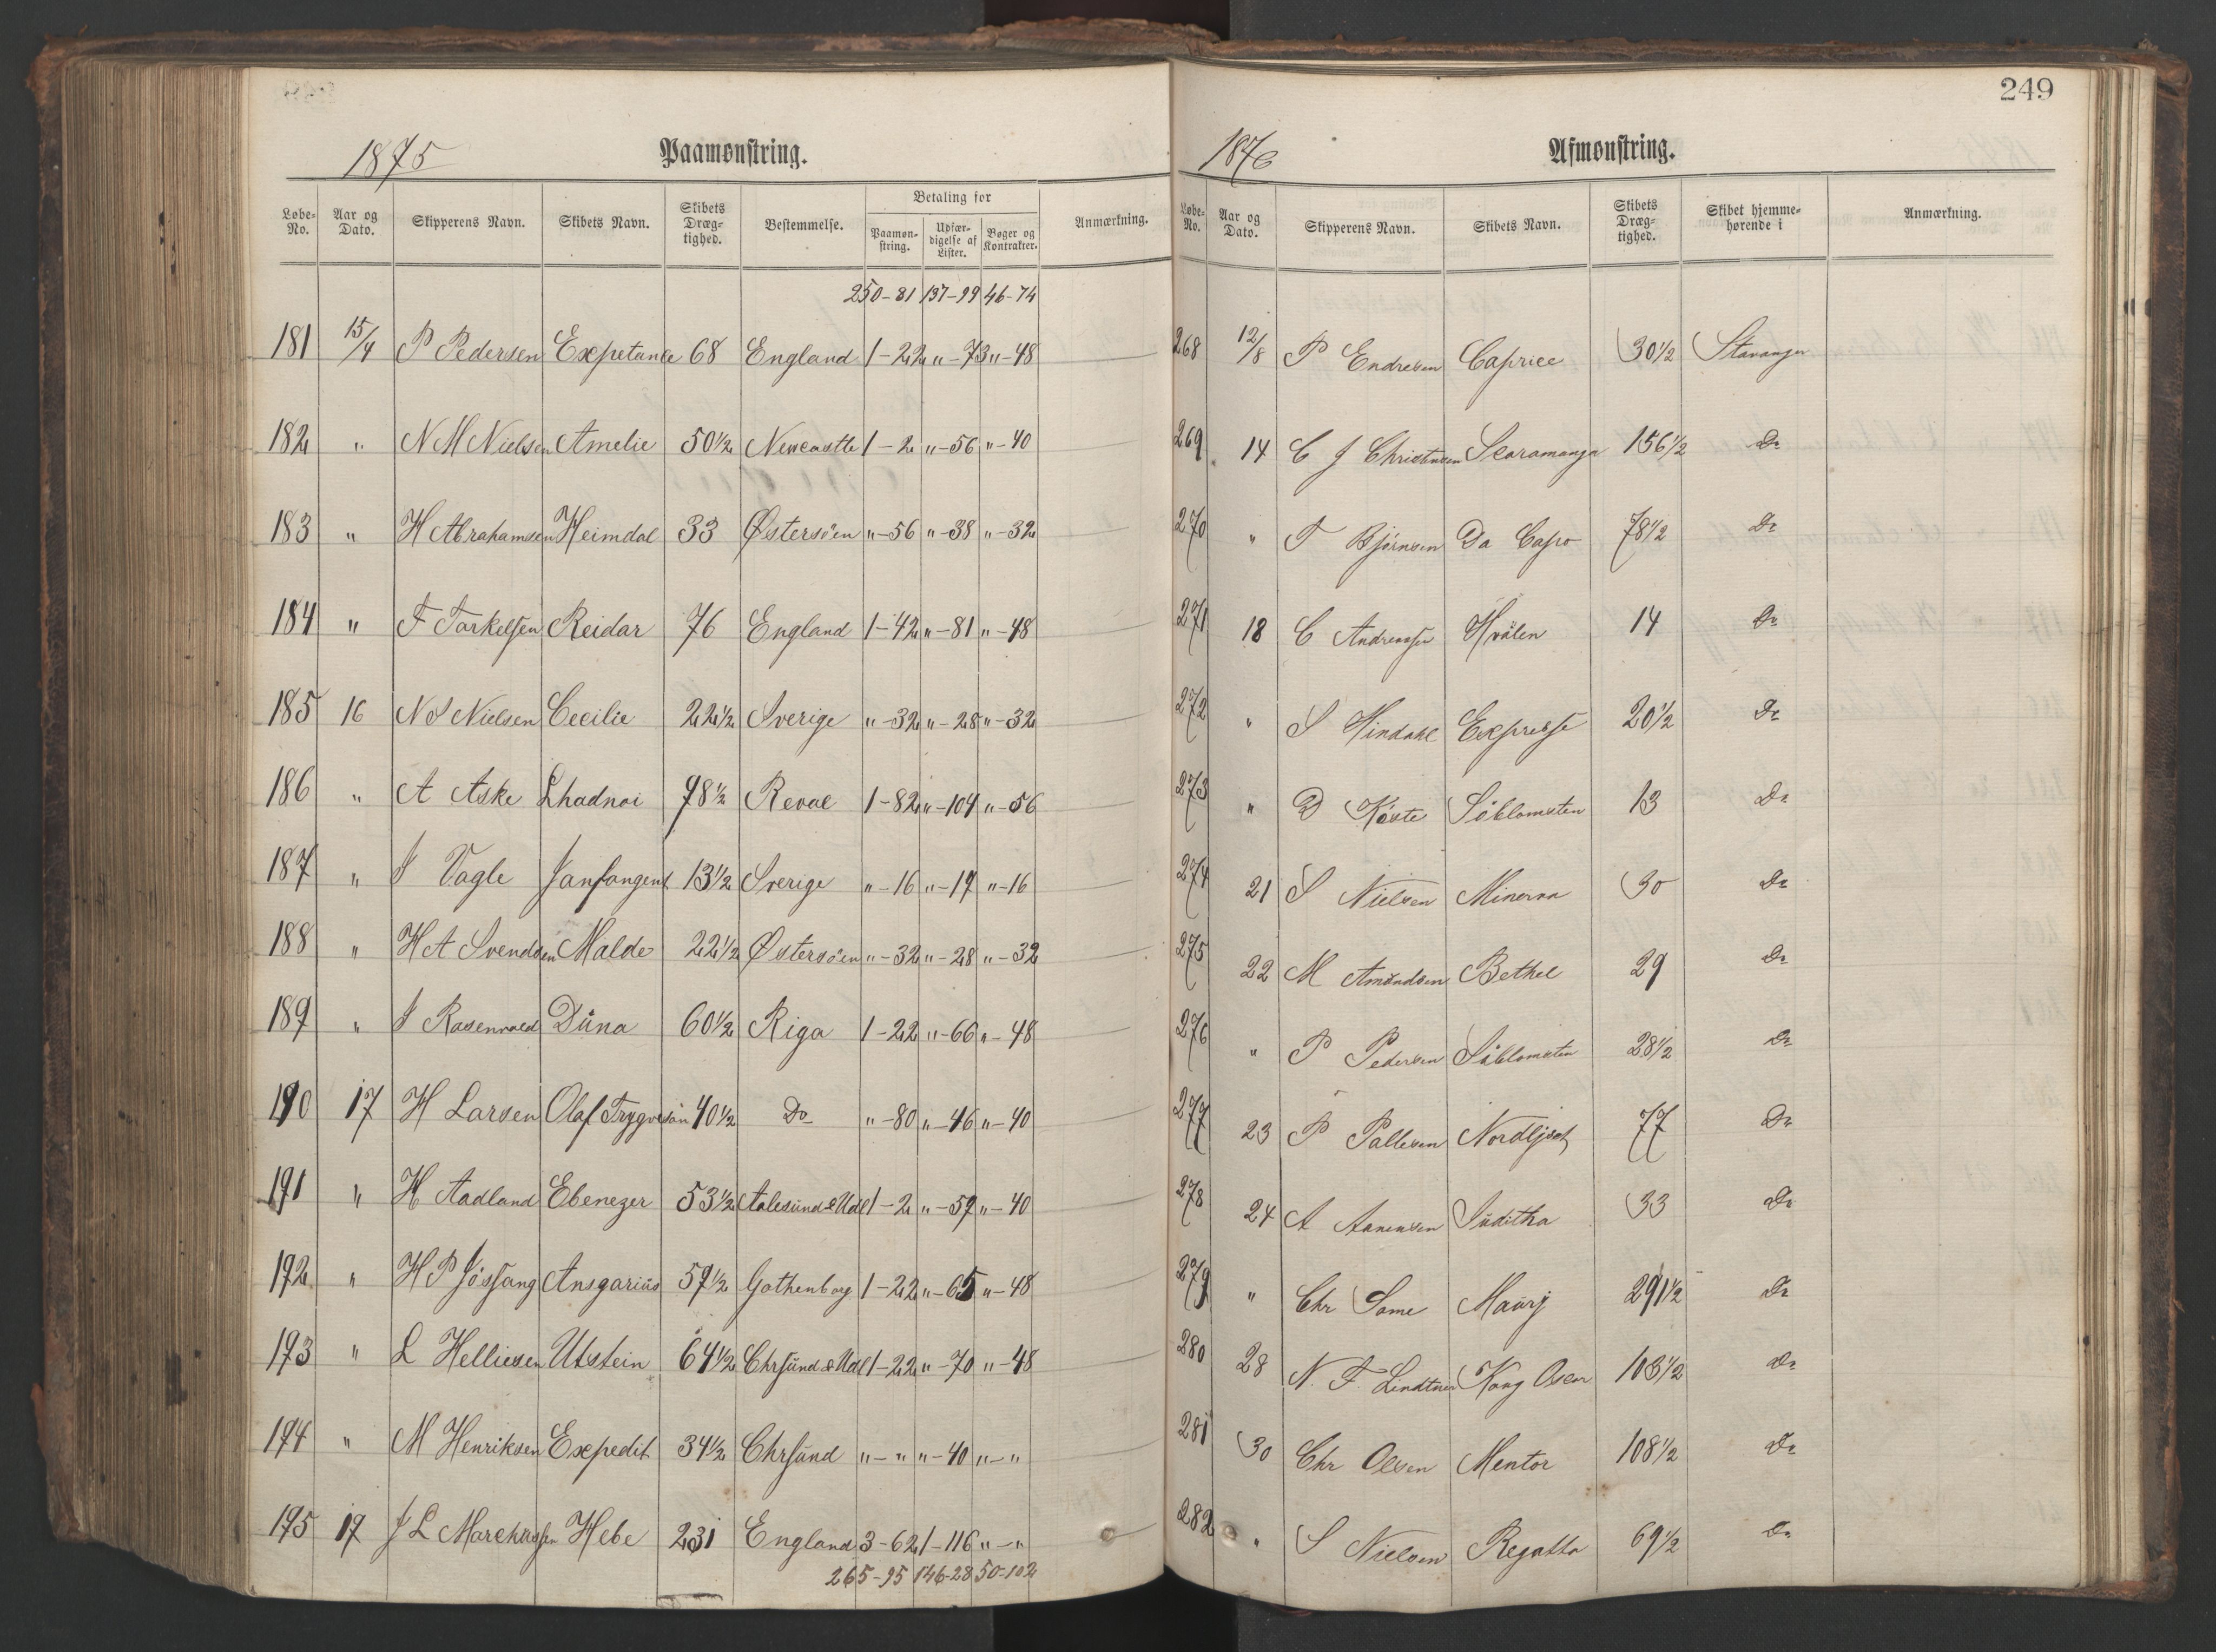 1875 Paamønstring.
Løbe-No. Aar og Dato. Skipperens Navn. Skibets Navn. Skibets Dræg-tighed. Bestemmelse. Betaling for Paamøn-string. Udfær-digelse af Lister. Bøger og Kontrakter. Anmærkning.
250-81 137-99 46-74
181 15/4 P Pedersen Expetance 68 England 1-22 "-73 "-48
182 " N M Nielsen Amelie 50½ Newcastle 1-2 "-56 "-40
183 " H Abrahamsen Heimdal 33 Østersöen "-56 "-38 "-32
184 " F Torkelsen Reidar 76 England 1-42 "-81 "-48
185 16 N S Nielsen Cecilie 22½ Sverige "-32 "-28 "-32
186 " A Aske Lhadnoi 98½ Reval 1-82 "-104 "-56
187 " J Vagle Janfangent 13½ Sverige "-16 "-17 "-16
188 " H A Svendsen Malde 22½ Østersöen "-32 "-28 "-32
189 " J Rosenvald Düna 60½ Riga 1-22 "-66 "-48
190 17 H Larsen Olaf Trygvesön 40½ Do "-80 "-46 "-40
191 " H Aadland Ebenezer 53½ Aalesund & Udl 1-2 "-59 "-40
192 " H P Jössang Ansgarius 59½ Gothenborg 1-22 "-65 "-48
193 " L Helliesen Utstein 64½ Chrsund & Udl 1-22 "-70 "-48
194 " M Henriksen Expedit 34½ Chrsund "-" "-40 "-"
195 19 J L Marchussen Hebe 231 England 3-62 1-116 "-"
265-95 146-28 50-102
249
1876 Afmønstring.
Løbe-No. Aar og Dato. Skipperens Navn. Skibets Navn. Skibets Dræg-tighed. Skibet hjemme-hørende i Anmærkning.
268 12/8 P Endresen Caprice 30½ Stavanger
269 14 C J Christensen Scaramanga 156½ Do
270 " T Bjørnsen Da Capo 78½ Do
271 18 C Andreassen Hvälen 14 Do
272 " S Hindahl Expresse 20½ Do
273 " D Köste Söblomsten 13 Do
274 21 S Nielsen Minerva 30 Do
275 22 M Amündsen Bethel 29 Do
276 " P Pedersen Söblomsten 28½ Do
277 23 P Pallesen Nordljset 77 Do
278 24 A Aanensen Juditha 33 Do
279 " Chr Some Maürj 291½ Do
280 28 N. F. Lindtner Kong Oscar 103½ Do
281 30 Chr Olsen Mentor 108½ Do
282 " S Nielsen Regatta 69½ Do